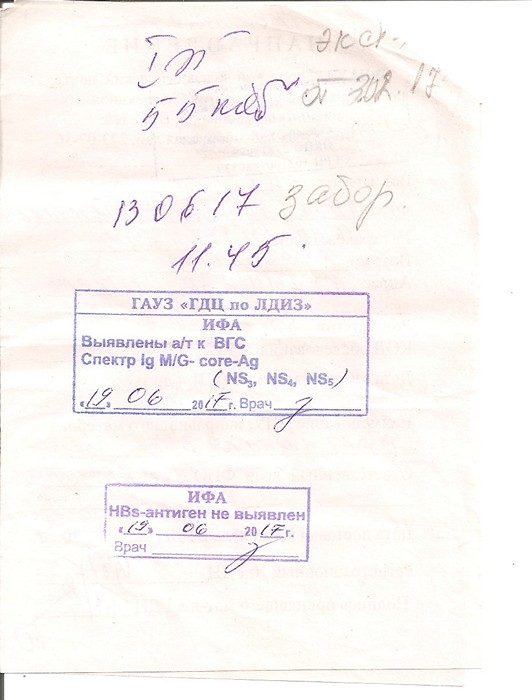 I эт
экс
55 каб
от 30.2.17
13 06 17 забор.
11.45
ГАУЗ «ГДЦ по ЛДИЗ»
ИФА
Выявлены а/т к ВГС
Спектр Ig M/G- core-Ag
(NS3, NS4, NS5)
«19» 06 2017 г. Врач
ИФА
HBs-антиген не выявлен
«19» 06 2017 г.
Врач